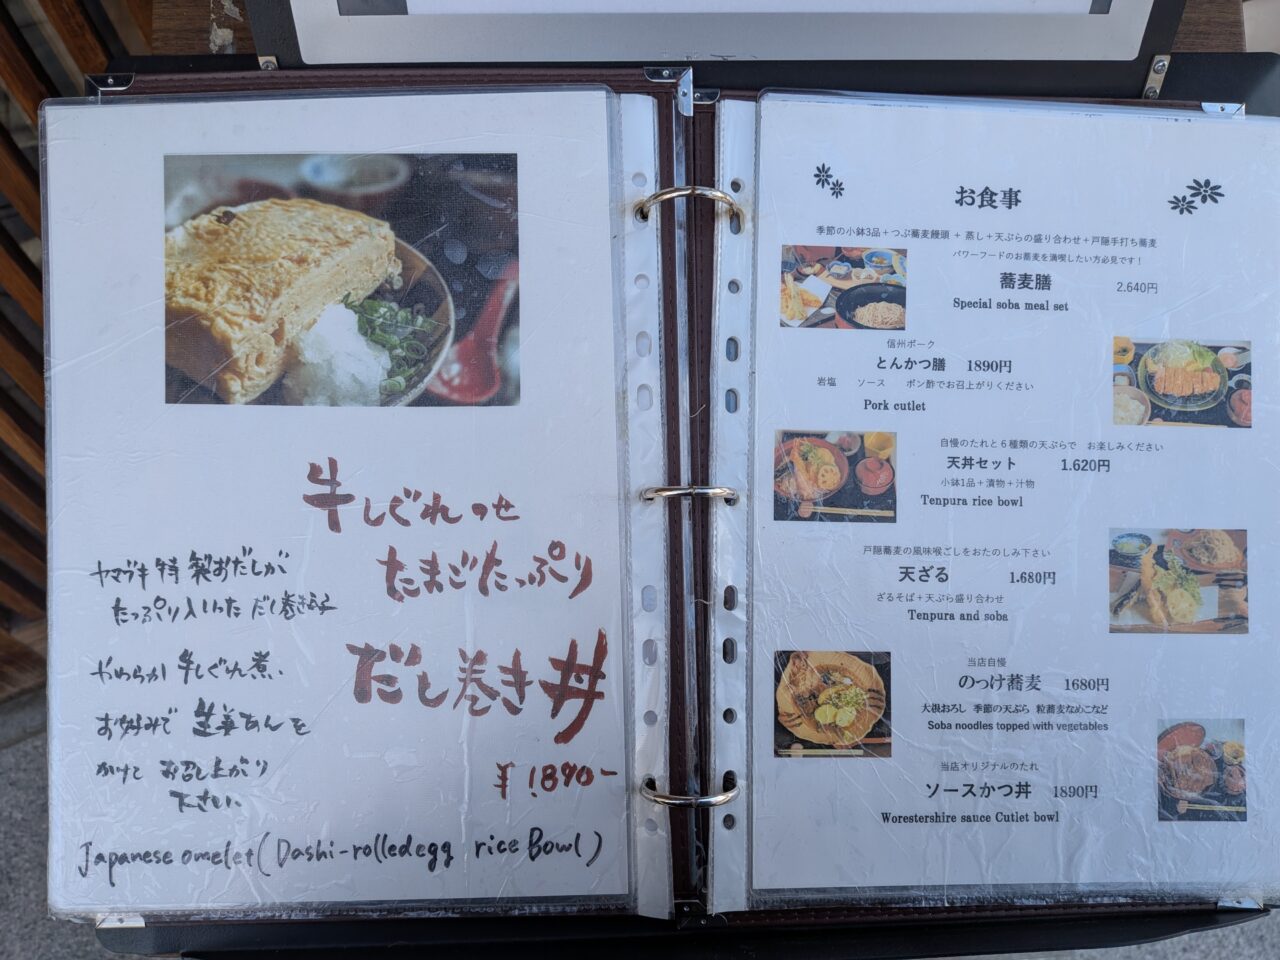 牛しぐれのせ
たまごたっぷり
だし巻き丼
¥1890-
ヤマブキ特製おだしが
たっぷり入った だし巻き玉子
やわらか牛しぐれ煮
お好みで 生姜あんを
かけて お召し上がり
下さい
Japanese omelet(Dashi-rolledegg rice Bowl)
お食事
季節の小鉢3品+つぶ蕎麦饅頭 + 蒸し+天ぷらの盛り合わせ+戸隠手打ち蕎麦
パワーフードのお蕎麦を満喫したい方必見です!
蕎麦膳 2.640円
Special soba meal set
信州ポーク
とんかつ膳 1890円
岩塩 ソース ポン酢でお召上がりください
Pork cutlet
自慢のたれと6種類の天ぷらで お楽しみください
天丼セット 1.620円
小鉢1品+漬物+汁物
Tenpura rice bowl
戸隠蕎麦の風味喉ごしをおたのしみ下さい
天ざる 1.680円
ざるそば+天ぷら盛り合わせ
Tenpura and soba
当店自慢
のっけ蕎麦 1680円
大根おろし 季節の天ぷら 粒蕎麦なめこなど
Soba noodles topped with vegetables
当店オリジナルのたれ
ソースかつ丼 1890円
Worestershire sauce Cutlet bowl